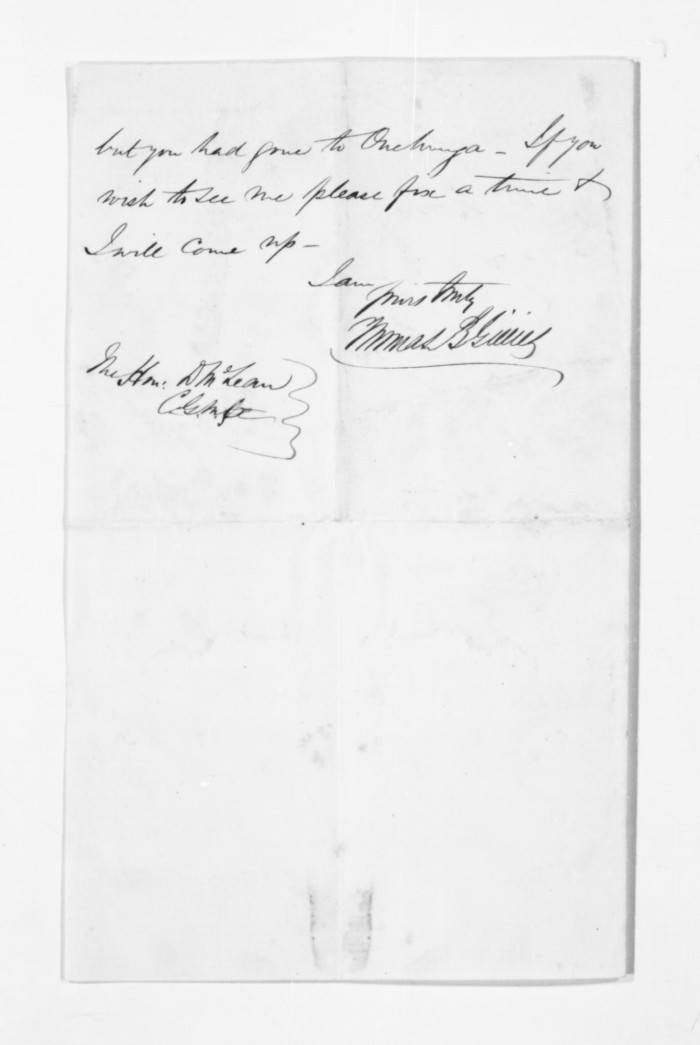 but you had gone to Onehunga - If you
wish to see me please fix a time &
I will come up -
I am
yours truly
Thomas B Gillies
The Hon: D McLean